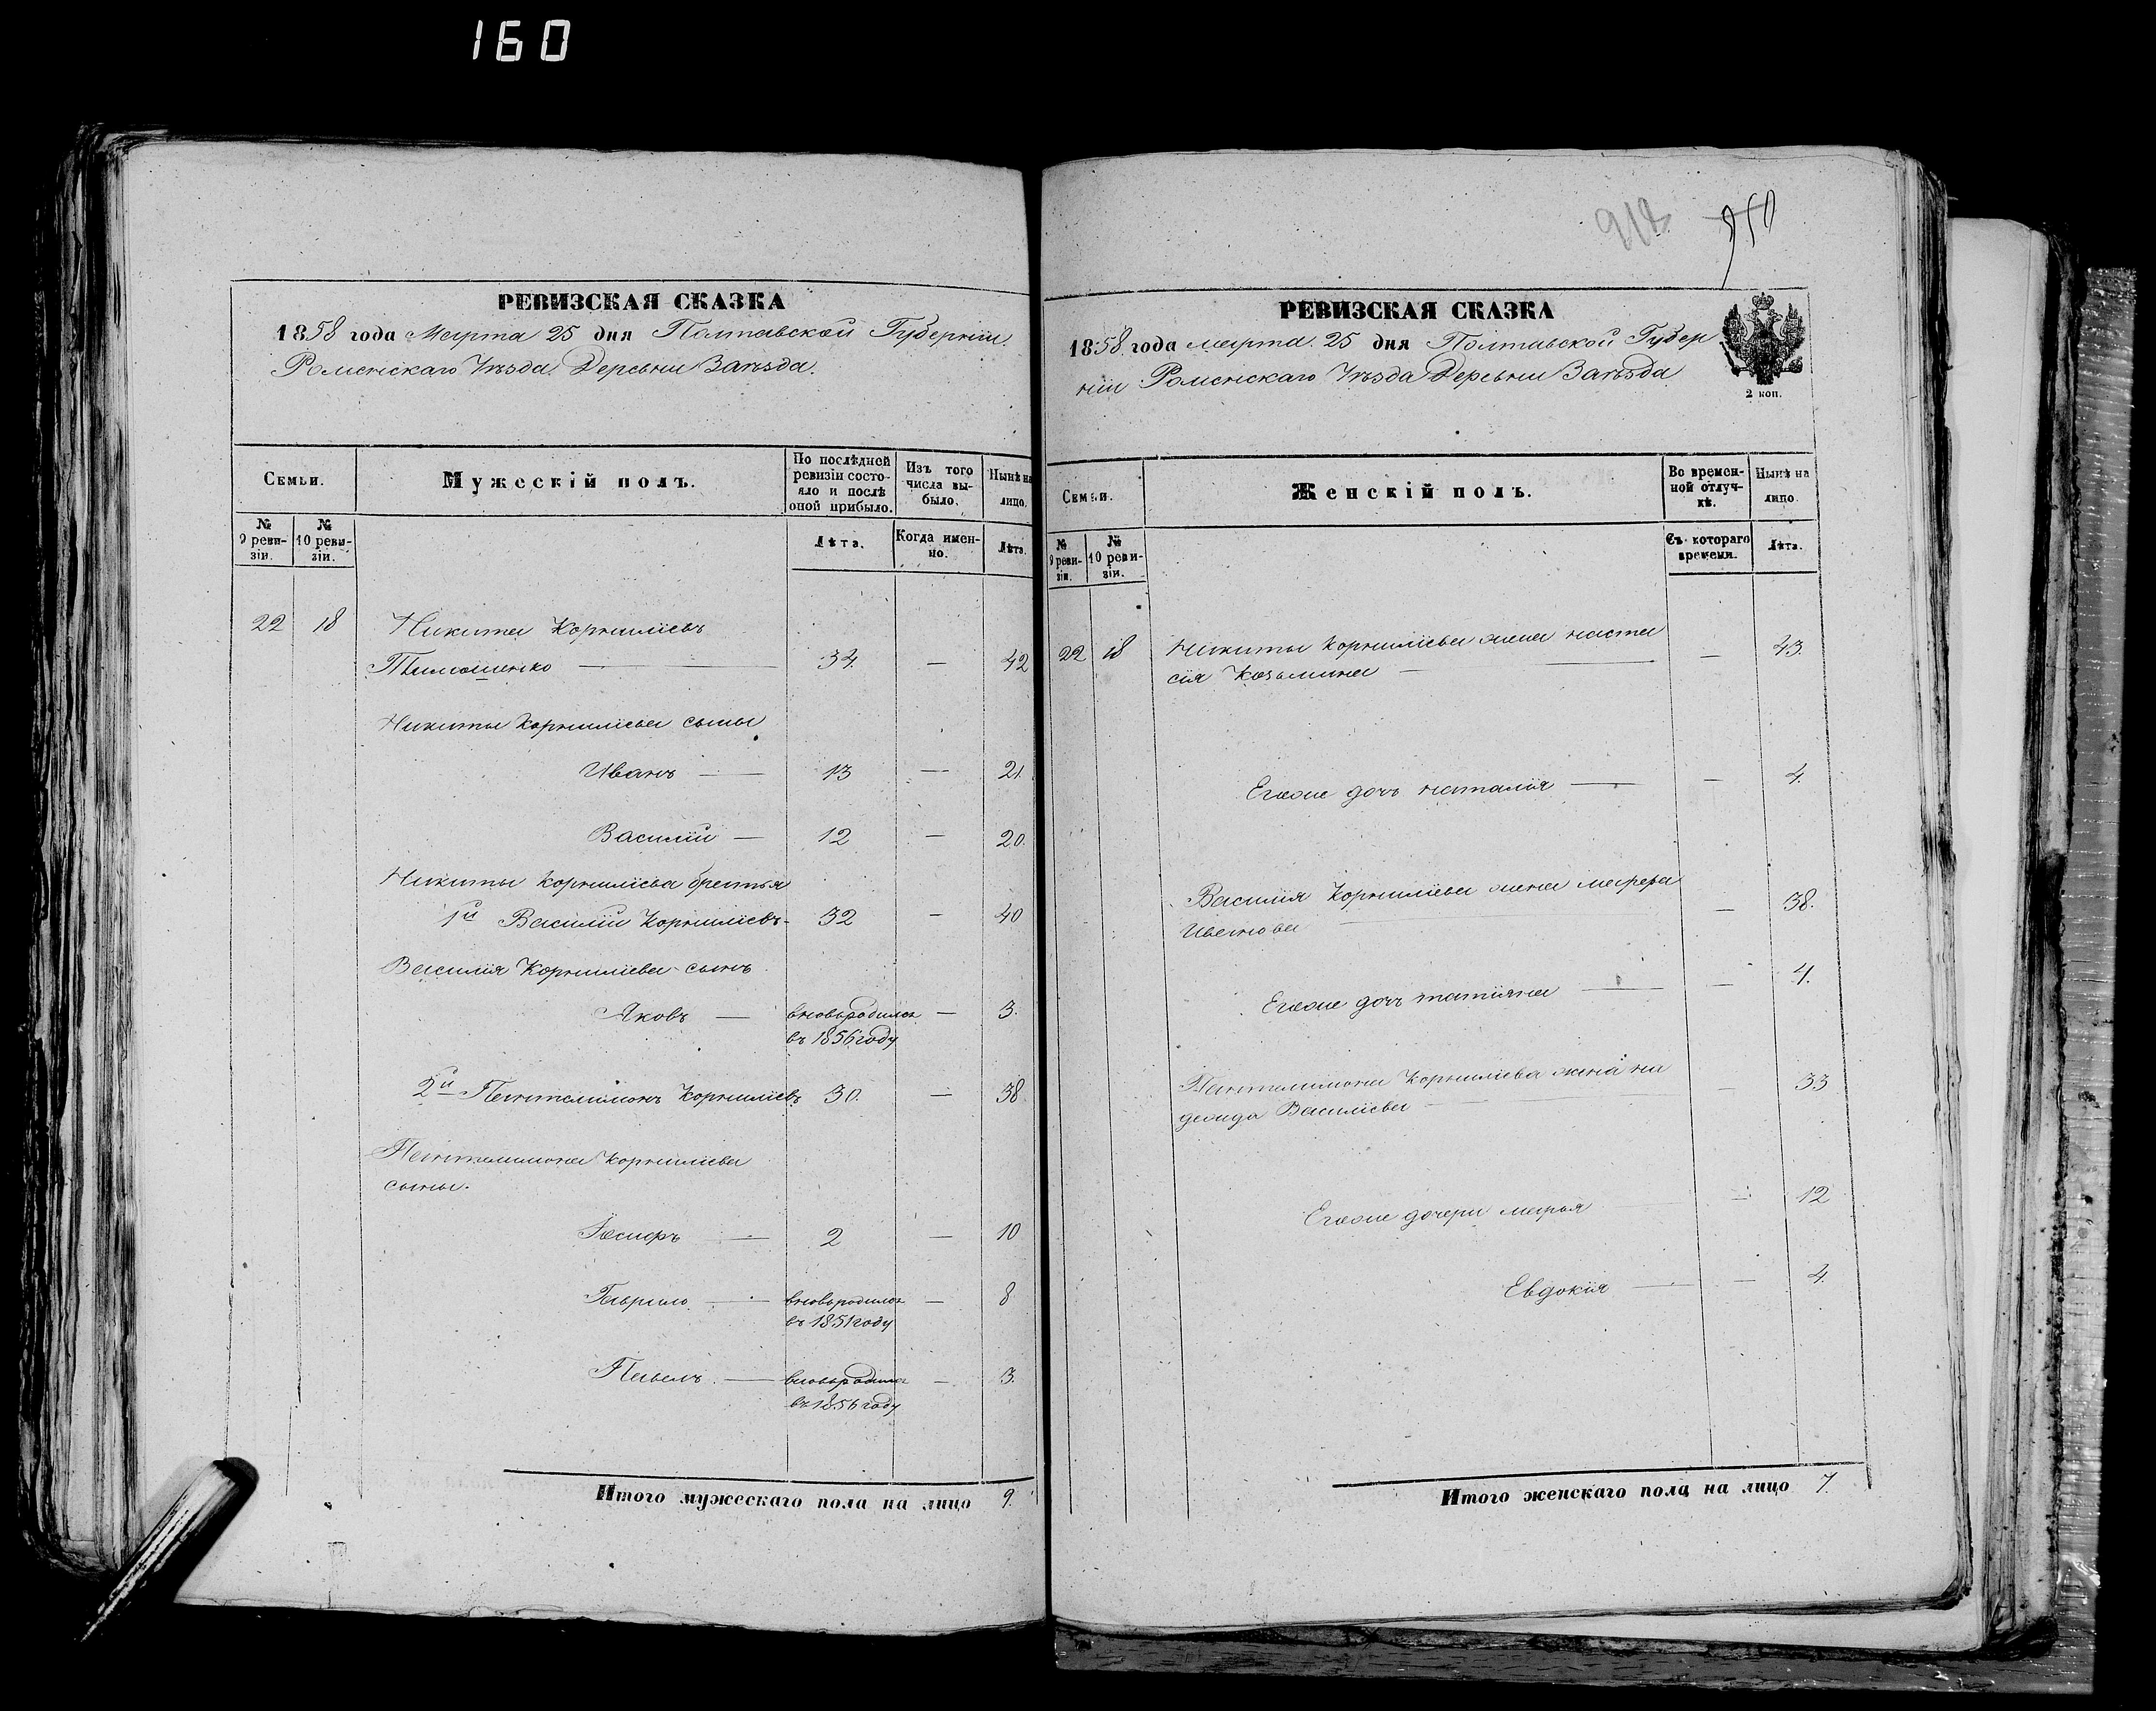 160
РЕВИЗСКАЯ СКАЗКА
1858 года Марта 25 дня Полтавской Губерніи
Роменскаго Уѣзда Деревни Заѣзда.
Семьи.
Мужескій полъ.
По послѣдней ревизіи состояло и послѣ оной прибыло.
Изъ того числа выбыло.
Нынѣ на лицо.
№ 9 ревизіи.
№ 10 ревизіи.
Лѣта.
Когда именно.
Лѣта.
22 18 Никита Корниліевъ
Тимошенко — 34. — 42
Никиты Корниліева сыны
Иванъ — 13 — 21.
Василій — 12 — 20.
Никиты Корниліева братья
1й Василій Корниліевъ - 32 — 40
Василія Корниліева сынъ
Яковъ — вновьродился — 3.
въ 1856 году
2й Пантелимонъ Корниліевъ 30. — 38
Пантелимона Корниліева
сыны.
Іосифъ — 2 — 10
Гаврило — вновьродился — 8
въ 1851 году
Павелъ. — вновьродился — 3.
въ 1856 году
Итого мужескаго пола на лицо 9.
918 950
РЕВИЗСКАЯ СКАЗКА
1858 года марта 25 дня Полтавской Губер
ніи Роменскаго Уѣзда Деревни Заѣзда
2 коп.
Семьи.
Женскій полъ.
Во временной отлучкѣ.
Нынѣ на лицо.
№ 9 ревизіи.
№ 10 ревизіи.
Съ котораго времени.
Лѣта.
22 18 Никиты Корниліева жена наста
сія Козьмина — — 43.
Егоже дочь наталія — — 4.
Василія Корниліева жена марфа
Иванова — — 38.
Егоже дочь татіяна — — 4.
Пантелимона Корниліева жена на
дежда Василіева — — 33
Егоже дочери марья — 12
Евдокія — — 4.
Итого женскаго пола на лицо 7.